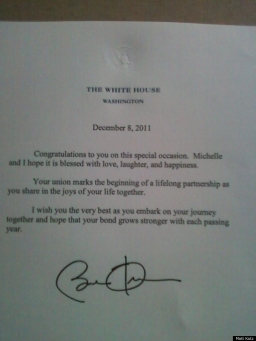 THE WHITE HOUSE
WASHINGTON
December 8, 2011
Congratulations to you on this special occasion. Michelle
and I hope it is blessed with love, laughter, and happiness.
Your union marks the beginning of a lifelong partnership as
you share in the joys of your life together.
I wish you the very best as you embark on your journey
together and hope that your bond grows stronger with each passing
year.
Matt Katz